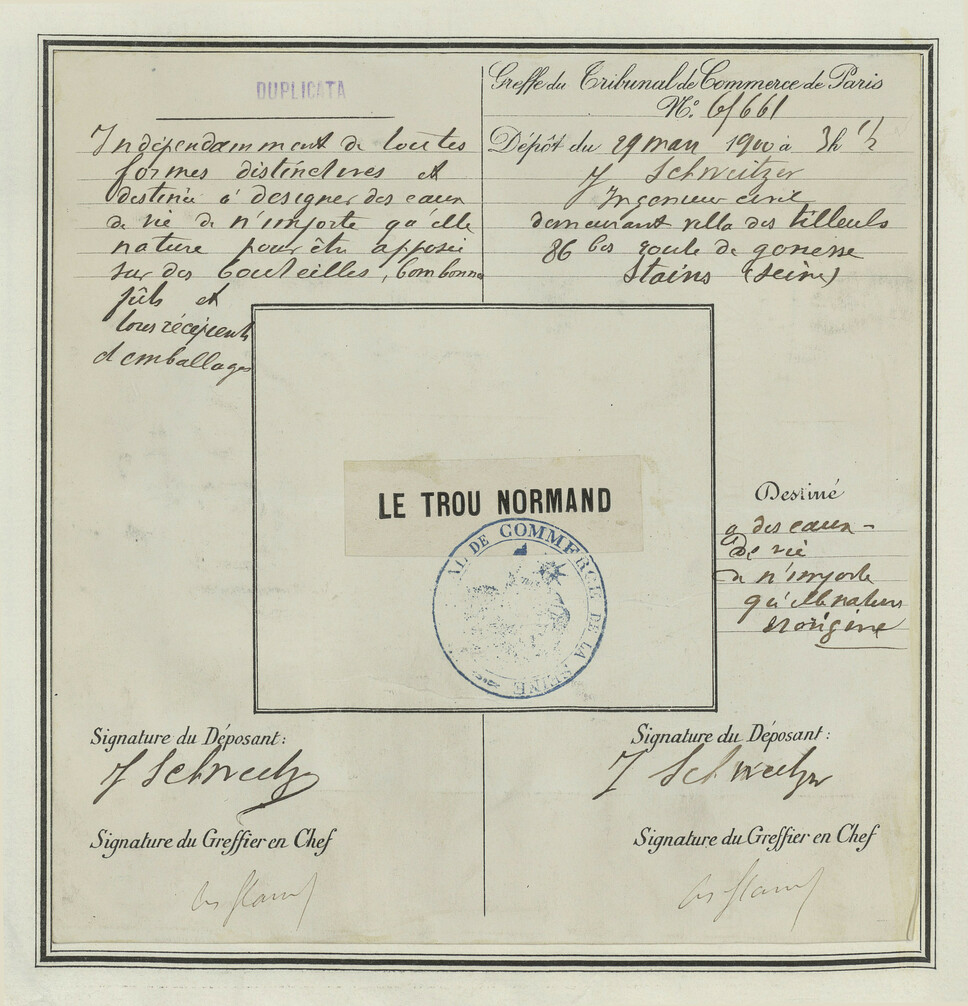 DUPLICATA
Indépendamment de toutes
formes distinctives et
destinée à designer des eaux
de vie de n'importe qu'elle
nature pour être apposée
sur des bouteilles, bombonnes
fûts et
tous récipients
d'emballages
Greffe du Tribunal de Commerce de Paris
N° 6/661
Dépôt du 29 mars 1900 à 3h 1/2
J Schweitzer
Ingenieur civil
demeurant villa des tilleuls
86 bis route de gonesse
Stains (Seine)
LE TROU NORMAND
AL DE COMMERCE DE LA SEINE
Destiné
a des eaux-
de vie
de n'importe
qu'elle nature
Signature du Déposant:
J Schweitzer
Signature du Greffier en Chef
Signature du Déposant:
J Schweitzer
Signature du Greffier en Chef